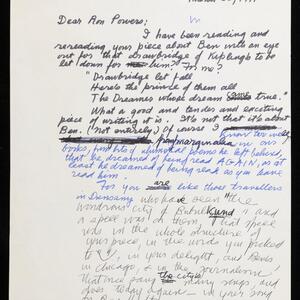 Dear Ron Powers;
I have been reading and
rereading your piece about Ben with an eye
out for "that drawbridge of Kipling's to be
let down for him". For me?
"Drawbridge let fall
Here's the prince of them all
The Dreamer whose dream came true."
What a good and tender and exciting
piece of writing it is. It's not that it's about
Ben. (not entirely) Of course I
marginalia in our
books
that he dreamed of being read AGAIN or at
least he dreamed of being read as you have
read him.
For you are like those travellers
in Dunsany who have seen "the
wondrous city of Babul Kund" and
a spell was on them, that spell
is in the whole direction of
your piece, in the words you picked
to, in your delight, and Ben's
in Chicago, & in the journalism
that once sang the city's many songs, and
does today again - in your song